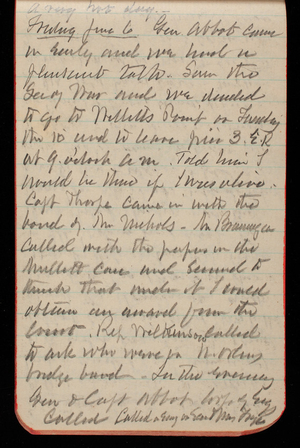 a very hot day.
Friday June 6 Gen Abbot came
in early and we had a
pleasant talk. Saw the
Secy War and we decided
to go to Willetts Point on Tuesday
the 10 and to leave pier 3. E R
at 9. o'clock a.m. Told him I
would be there if I was alive.
Capt Thorpe came in with the
bond of Mr Nichols - Mr
called with the papers in the
Mullett case and seemed to
think that under it I could
obtain an award from the
court. Rep Wilkinson called
to ask who were in
bridge bond - In the evening
Gen & Capt Abbot Corps of Eng
called Called a Eng and Mrs